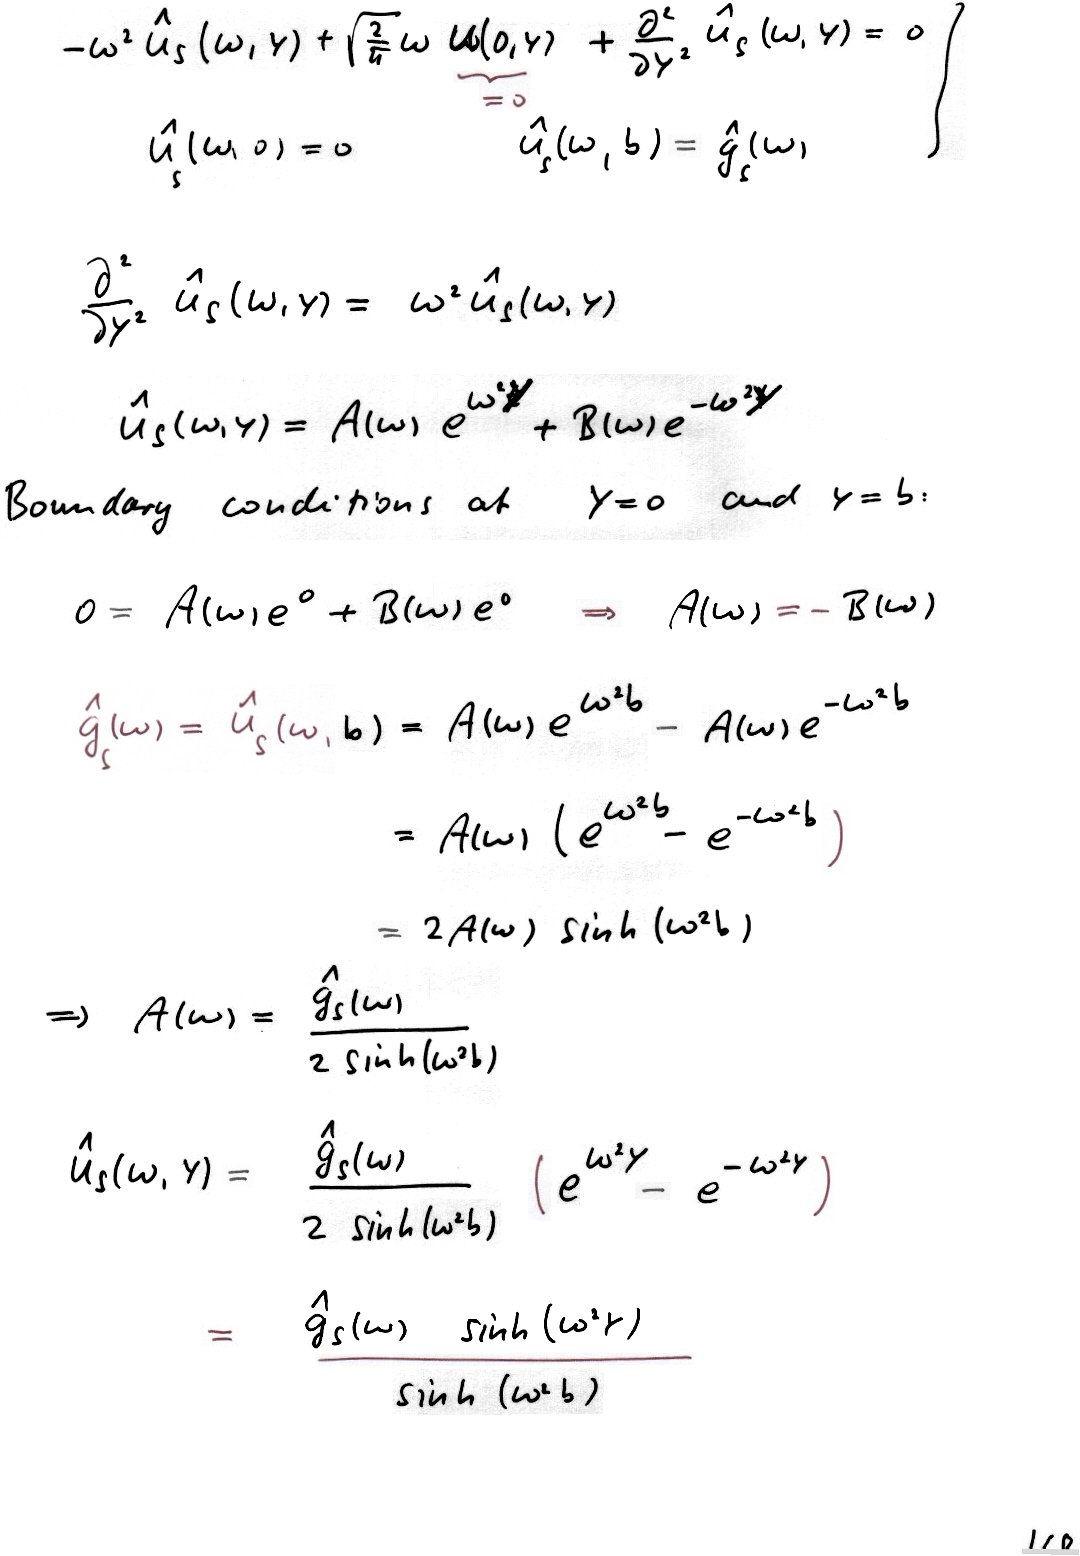 -ω² û_s(ω, y) + √(2/π) ω u(0, y) + ∂²/∂y² û_s(ω, y) = 0
= 0
û_s(ω, 0) = 0    û_s(ω, b) = ĝ_s(ω)
∂²/∂y² û_s(ω, y) = ω² û_s(ω, y)
û_s(ω, y) = A(ω) e^{ω²y} + B(ω) e^{-ω²y}
Boundary conditions at y=0 and y=b:
0 = A(ω) e⁰ + B(ω) e⁰ ⇒ A(ω) = - B(ω)
ĝ_s(ω) = û_s(ω, b) = A(ω) e^{ω²b} - A(ω) e^{-ω²b}
= A(ω) (e^{ω²b} - e^{-ω²b})
= 2A(ω) sinh(ω²b)
⇒ A(ω) = ĝ_s(ω) / 2 sinh(ω²b)
û_s(ω, y) = ĝ_s(ω) / 2 sinh(ω²b) (e^{ω²y} - e^{-ω²y})
= ĝ_s(ω) sinh(ω²y) / sinh(ω²b)